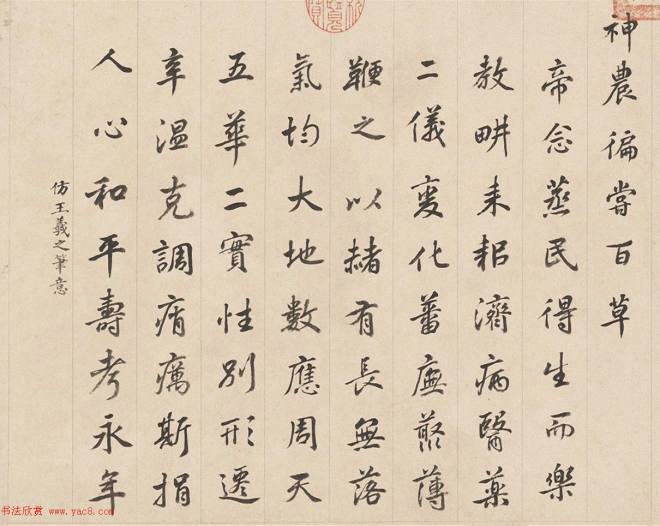 神農徧嘗百草
帝念蒸民得生而樂
教畊耒耜濟病醫藥
二儀变化蕃廡叢薄
鞭之以赭有長無落
氣均大地數應周天
五華二實性别形遷
辛温克調痟癘斯捐
人心和平壽考永年
仿王羲之筆意
书法欣赏 www.yac8.com